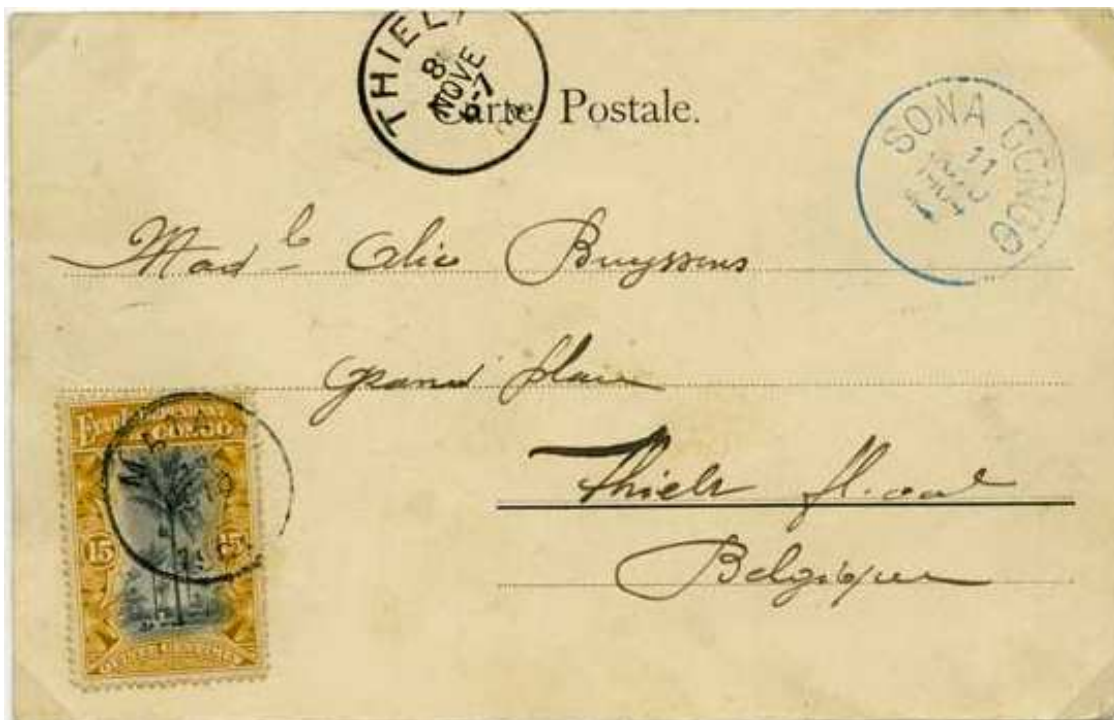 THIEL
8
NOVE
6-7
Carte Postale.
SONA GONGO
11
1904
Mad le Alice Buyssens
Grand place
Thielt fl. occ
Belgique
ETAT INDÉPENDANT
DU CONGO
15 15
QUINZE CENTIMES